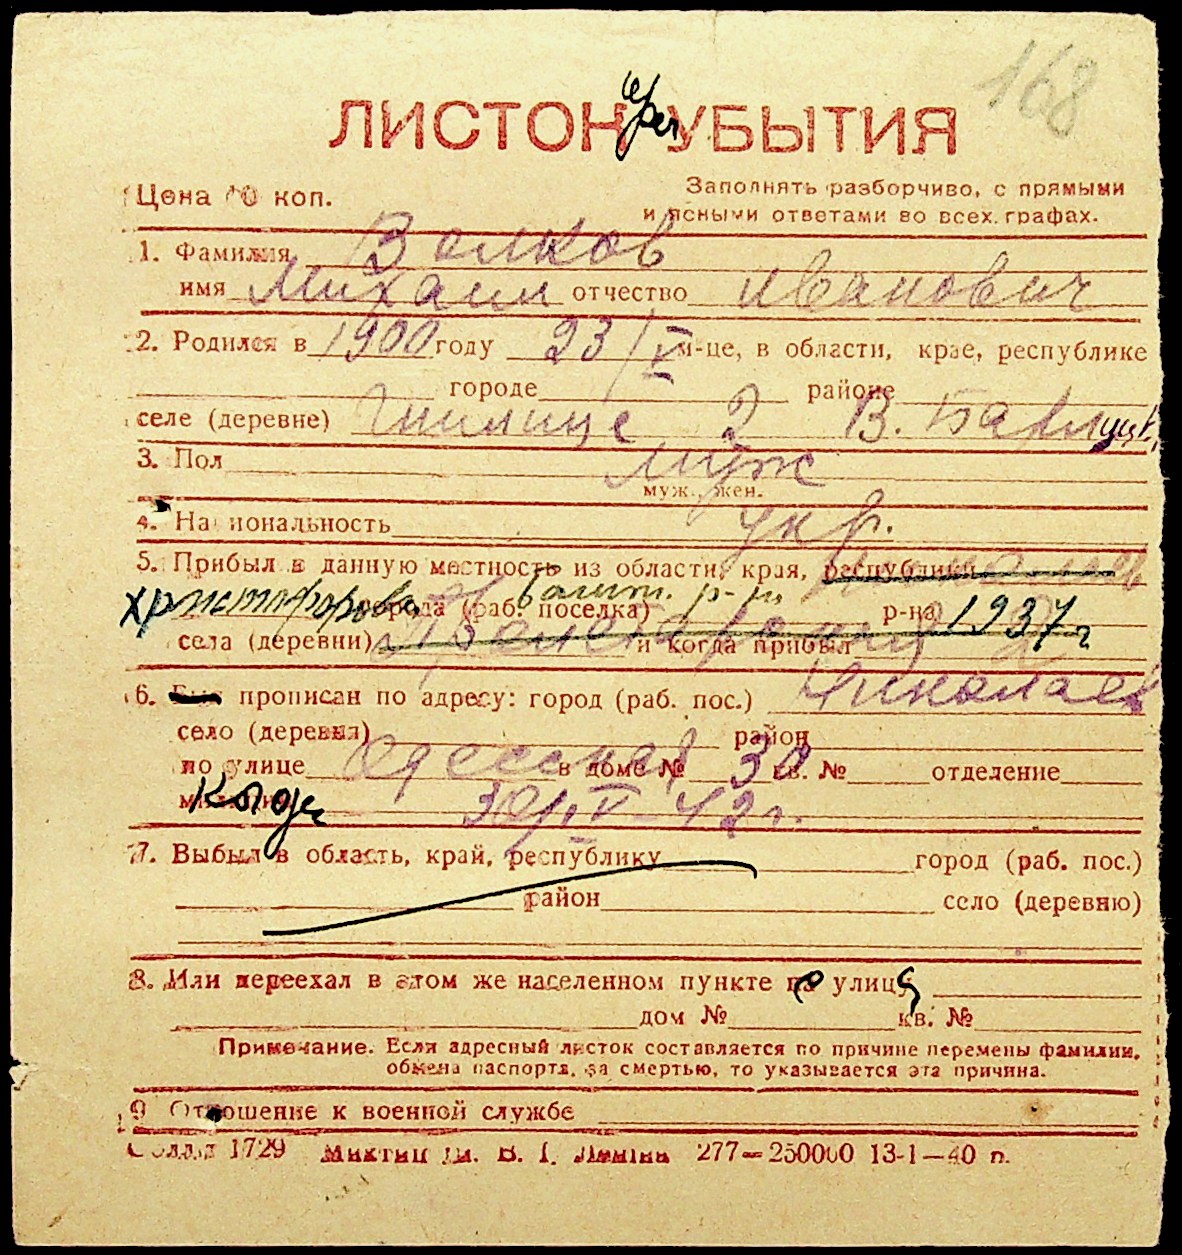 168
ЛИСТОК УБЫТИЯ
Цена 10 коп.
Заполнять разборчиво, с прямыми
и ясными ответами во всех графах.
1. Фамилия Волков
имя Михаил отчество Иванович
2. Родился в 1900 году 23/V м-це, в области, крае, республике
городе районе
селе (деревне) 2 В.
3. Пол муж
муж., жен.
4. Национальность укр.
5. Прибыл в данную местность из области, края, республики
города (раб. поселка) р-на 1937 г
села (деревни) и когда прибыл
6. прописан по адресу: город (раб. пос.) Николаев
село (деревня) район
по улице Одесская в доме № 30 кв. № отделение
когда 30/IV-42 г.
7. Выбыл в область, край, республику город (раб. пос.)
район село (деревню)
8. Или переехал в этом же населенном пункте по улице
дом № кв. №
Примечание. Если адресный листок составляется по причине перемены фамилии,
обмена паспорта, за смертью, то указывается эта причина.
9. Отношение к военной службе
1729 В. І. Леніна 277—250000 13-1—40 п.